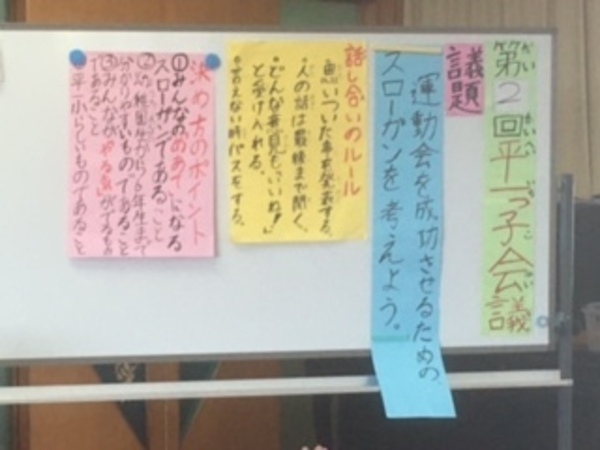 第2回平一っ子会議
議題
運動会を成功させるための
スローガンを考えよう。
話し合いのルール
・思いついた事を発表する。
・人の話は最後まで聞く。
・どんな意見も「いいね!」
と受け入れる。
・言えない時パスをする。
決め方のポイント
①みんなのめあてになる
スローガンであること
②幼稚園生から6年生まで
分かりやすいものであること
③みんなが「やる気」がでるもの
であること
平一小らしいものであること